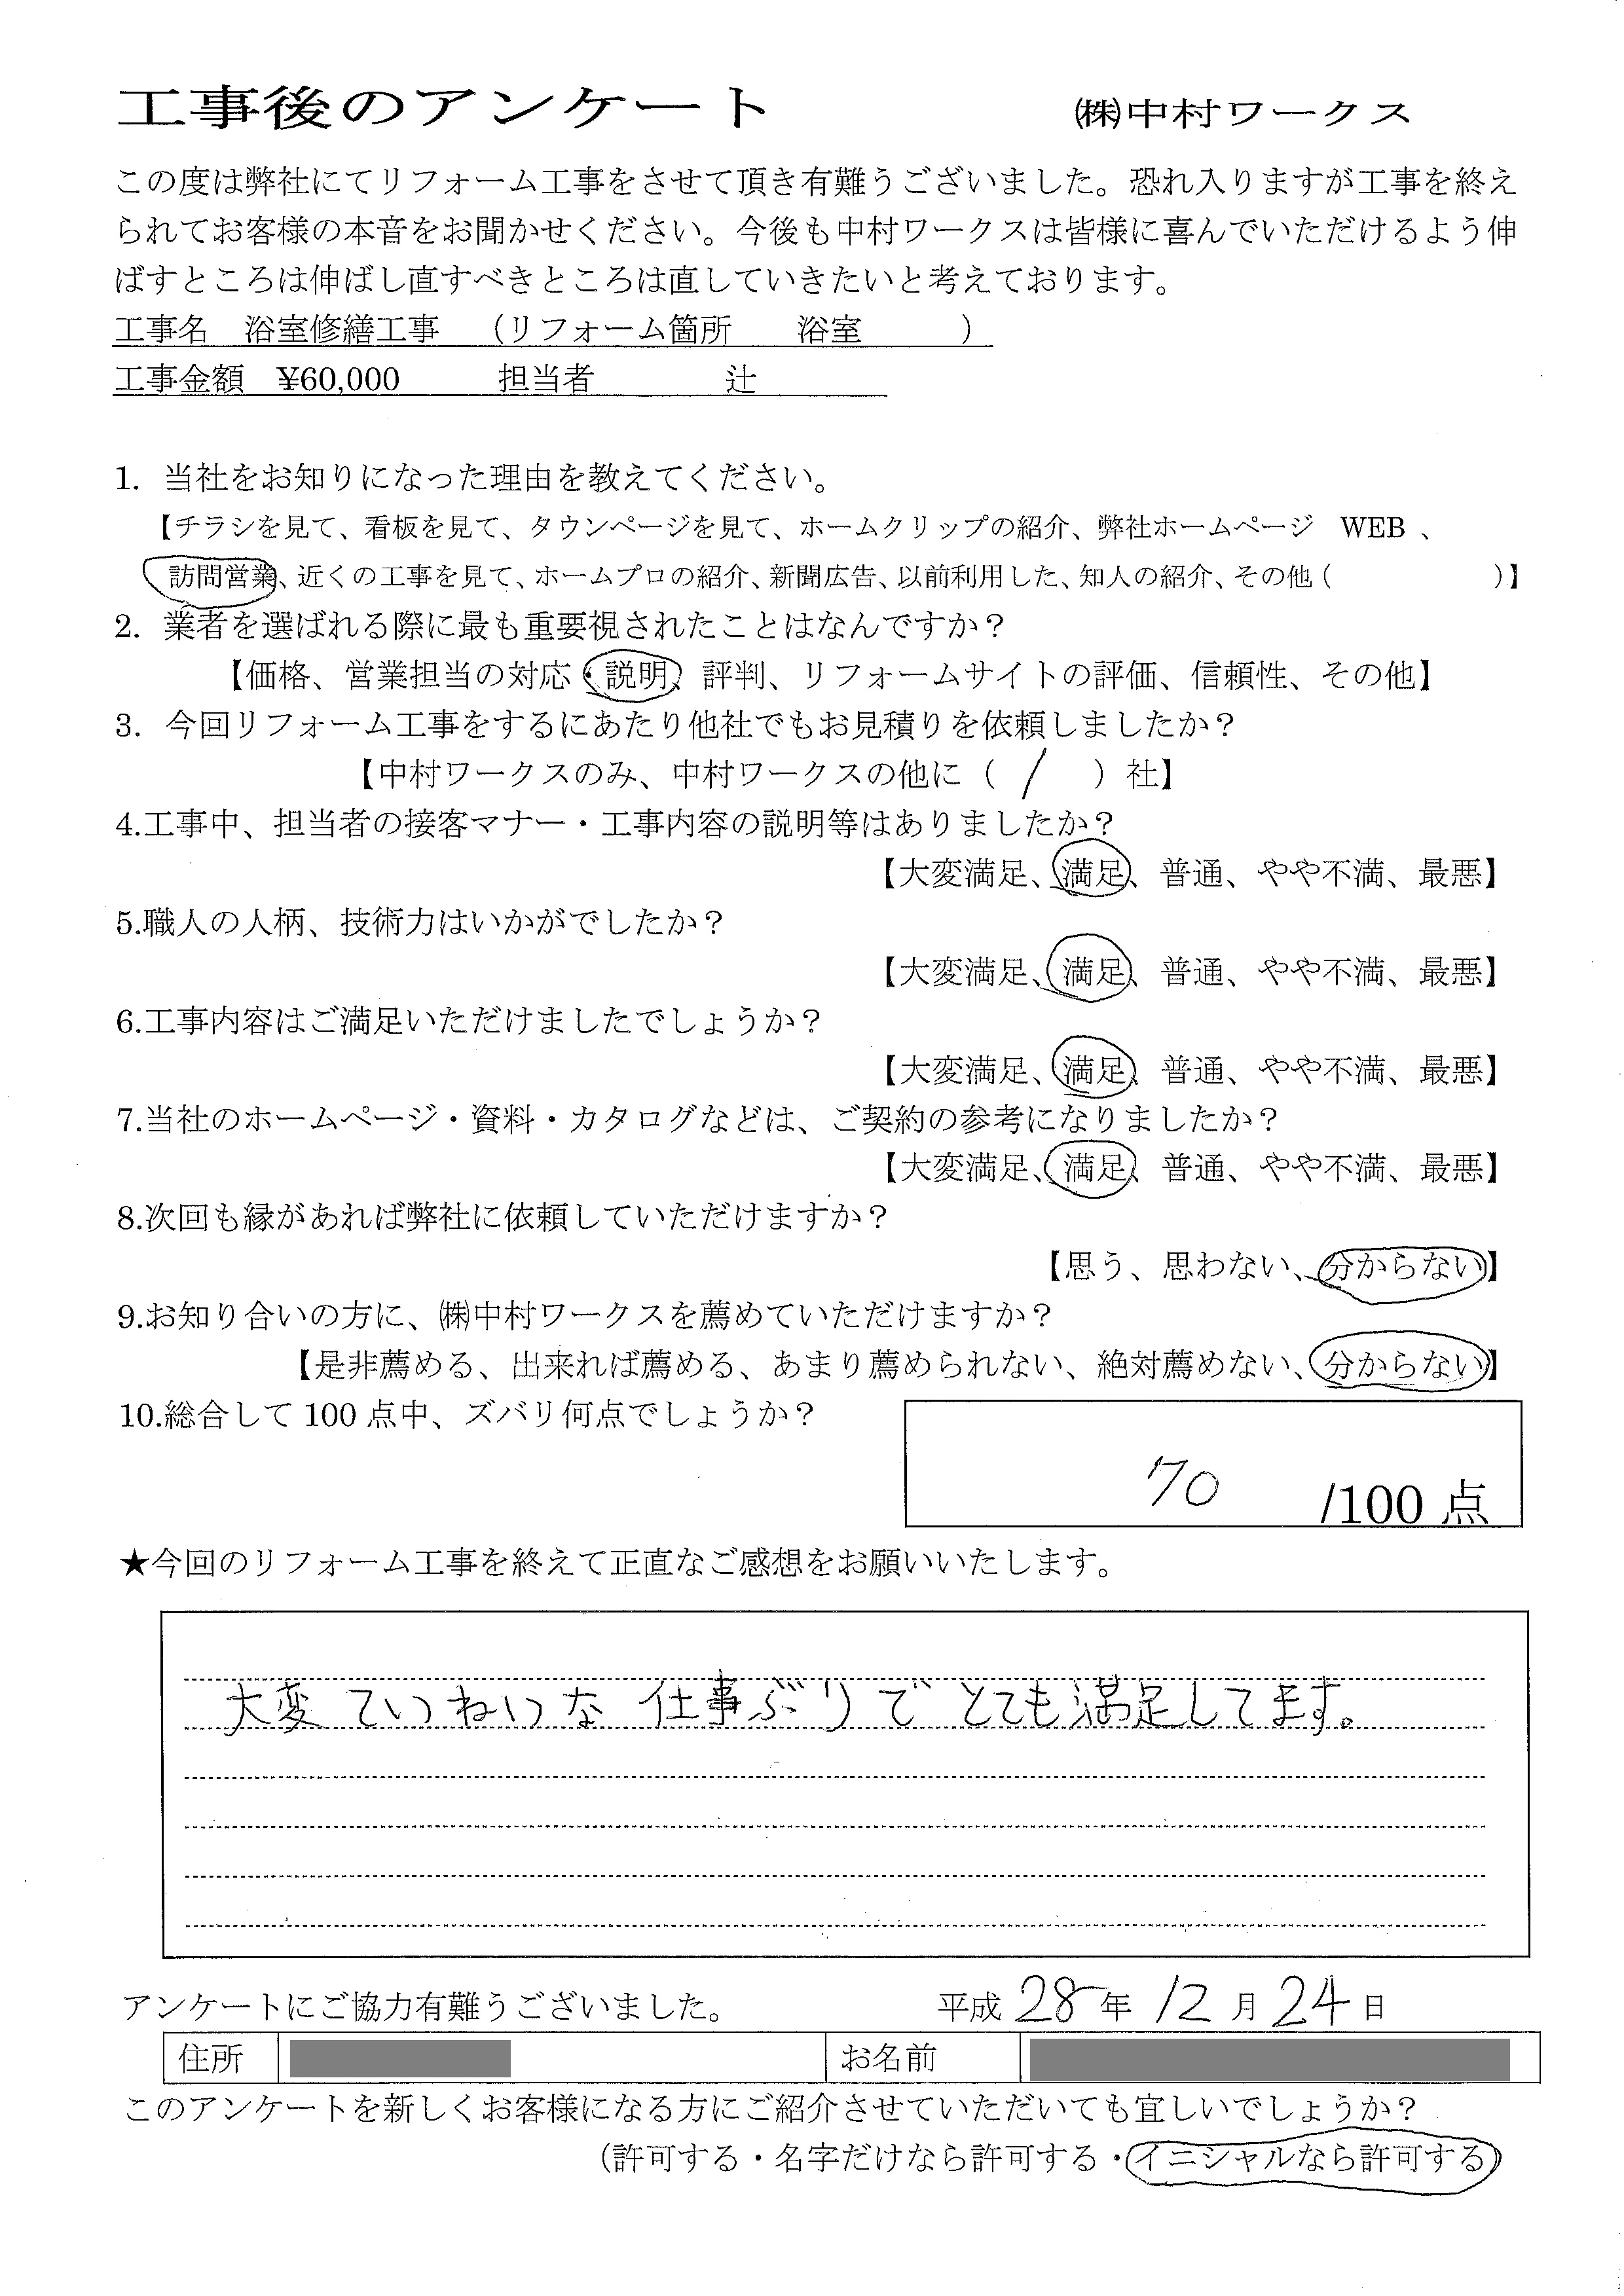 工事後のアンケート　㈱中村ワークス
この度は弊社にてリフォーム工事をさせて頂き有難うございました。恐れ入りますが工事を終え
られてお客様の本音をお聞かせください。今後も中村ワークスは皆様に喜んでいただけるよう伸
ばすところは伸ばし直すべきところは直していきたいと考えております。
工事名　浴室修繕工事　（リフォーム箇所　　浴室　　　）
工事金額　¥60,000　　　担当者　　　　辻
1. 当社をお知りになった理由を教えてください。
【チラシを見て、看板を見て、タウンページを見て、ホームクリップの紹介、弊社ホームページ　WEB 、
訪問営業、近くの工事を見て、ホームプロの紹介、新聞広告、以前利用した、知人の紹介、その他（　　　　　）】
2. 業者を選ばれる際に最も重要視されたことはなんですか？
【価格、営業担当の対応・説明、評判、リフォームサイトの評価、信頼性、その他】
3. 今回リフォーム工事をするにあたり他社でもお見積りを依頼しましたか？
【中村ワークスのみ、中村ワークスの他に（　/　）社】
4.工事中、担当者の接客マナー・工事内容の説明等はありましたか？
【大変満足、満足、普通、やや不満、最悪】
5.職人の人柄、技術力はいかがでしたか？
【大変満足、満足、普通、やや不満、最悪】
6.工事内容はご満足いただけましたでしょうか？
【大変満足、満足、普通、やや不満、最悪】
7.当社のホームページ・資料・カタログなどは、ご契約の参考になりましたか？
【大変満足、満足、普通、やや不満、最悪】
8.次回も縁があれば弊社に依頼していただけますか？
【思う、思わない、分からない】
9.お知り合いの方に、㈱中村ワークスを薦めていただけますか？
【是非薦める、出来れば薦める、あまり薦められない、絶対薦めない、分からない】
10.総合して 100 点中、ズバリ何点でしょうか？
70 /100 点
★今回のリフォーム工事を終えて正直なご感想をお願いいたします。
大変ていねいな仕事ぶりでとても満足してます。
アンケートにご協力有難うございました。　平成 28 年 12 月 24 日
住所　お名前
このアンケートを新しくお客様になる方にご紹介させていただいても宜しいでしょうか？
（許可する・名字だけなら許可する・イニシャルなら許可する）